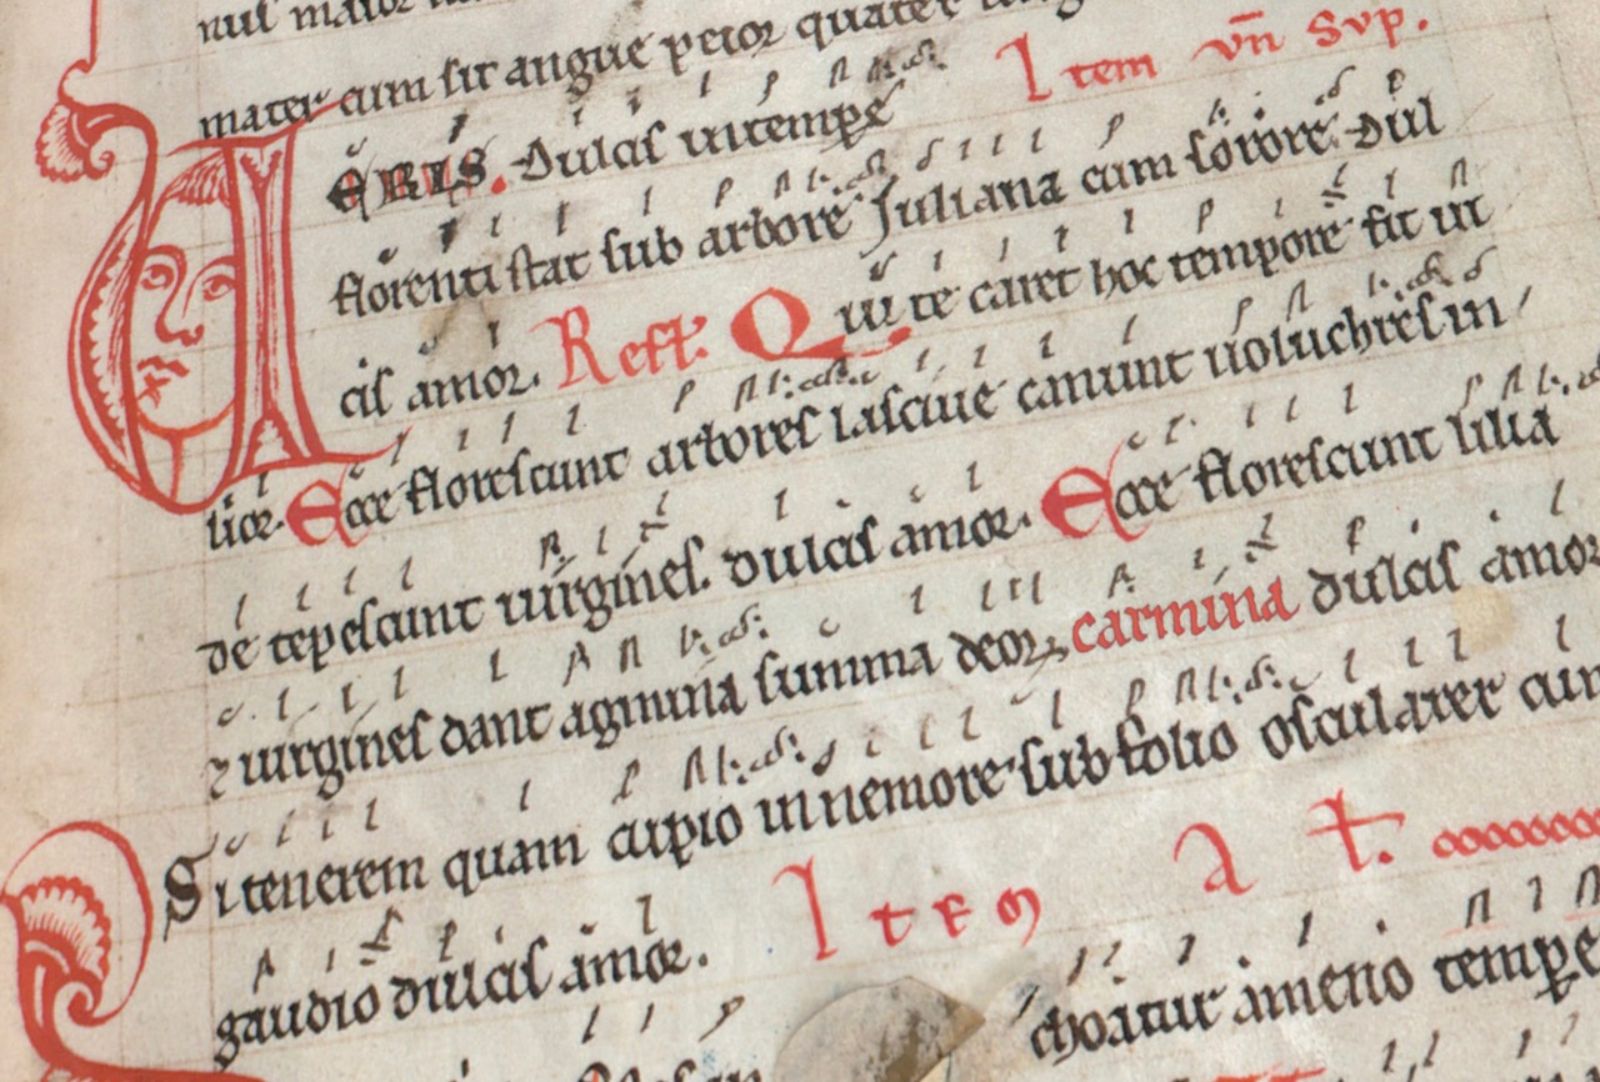 mater cum sit angue peior quater
Item vn Sup.
VERIS dulcis in tempe
florenti stat sub arbore Juliana cum sorore dul
cis amor. Refl. Qui te caret hoc tempore fit ui
lior. Ecce florescunt arbores lasciue canunt uoluchres in
de tepescunt uirgines. dulcis amor. Ecce florescunt lilia
& uirgines dant agmina summa deor carmina dulcis amor
Si tenerem quam cupio in nemore sub folio oscularer cum
gaudio dulcis amor. Item at.
choatur ameno tempe